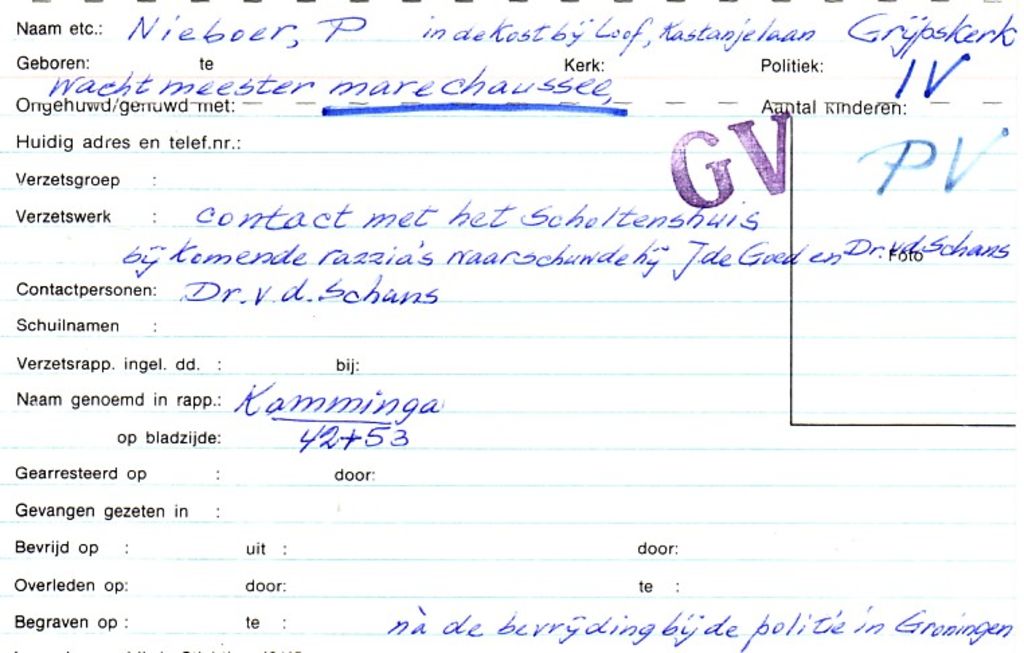 Naam etc.: Nieboer, P in de Kost bij Loof, Kastanjelaan Grijpskerk
Geboren: te Kerk: Politiek: IV
Wachtmeester marechaussee,
Ongehuwd/gehuwd met: Aantal kinderen:
Huidig adres en telef.nr.: GV PV
Verzetsgroep :
Verzetswerk : Contact met het Scholtenshuis
bij Komende razzia's waarschuwde hij J de Goed en Dr. vd. Schans
Foto
Contactpersonen: Dr. v. d. Schans
Schuilnamen :
Verzetsrapp. ingel. dd. : bij:
Naam genoemd in rapp.: Kamminga
op bladzijde: 42+53
Gearresteerd op : door:
Gevangen gezeten in :
Bevrijd op : uit : door:
Overleden op: door: te :
Begraven op : te : nà de bevrijding bij de politie in Groningen